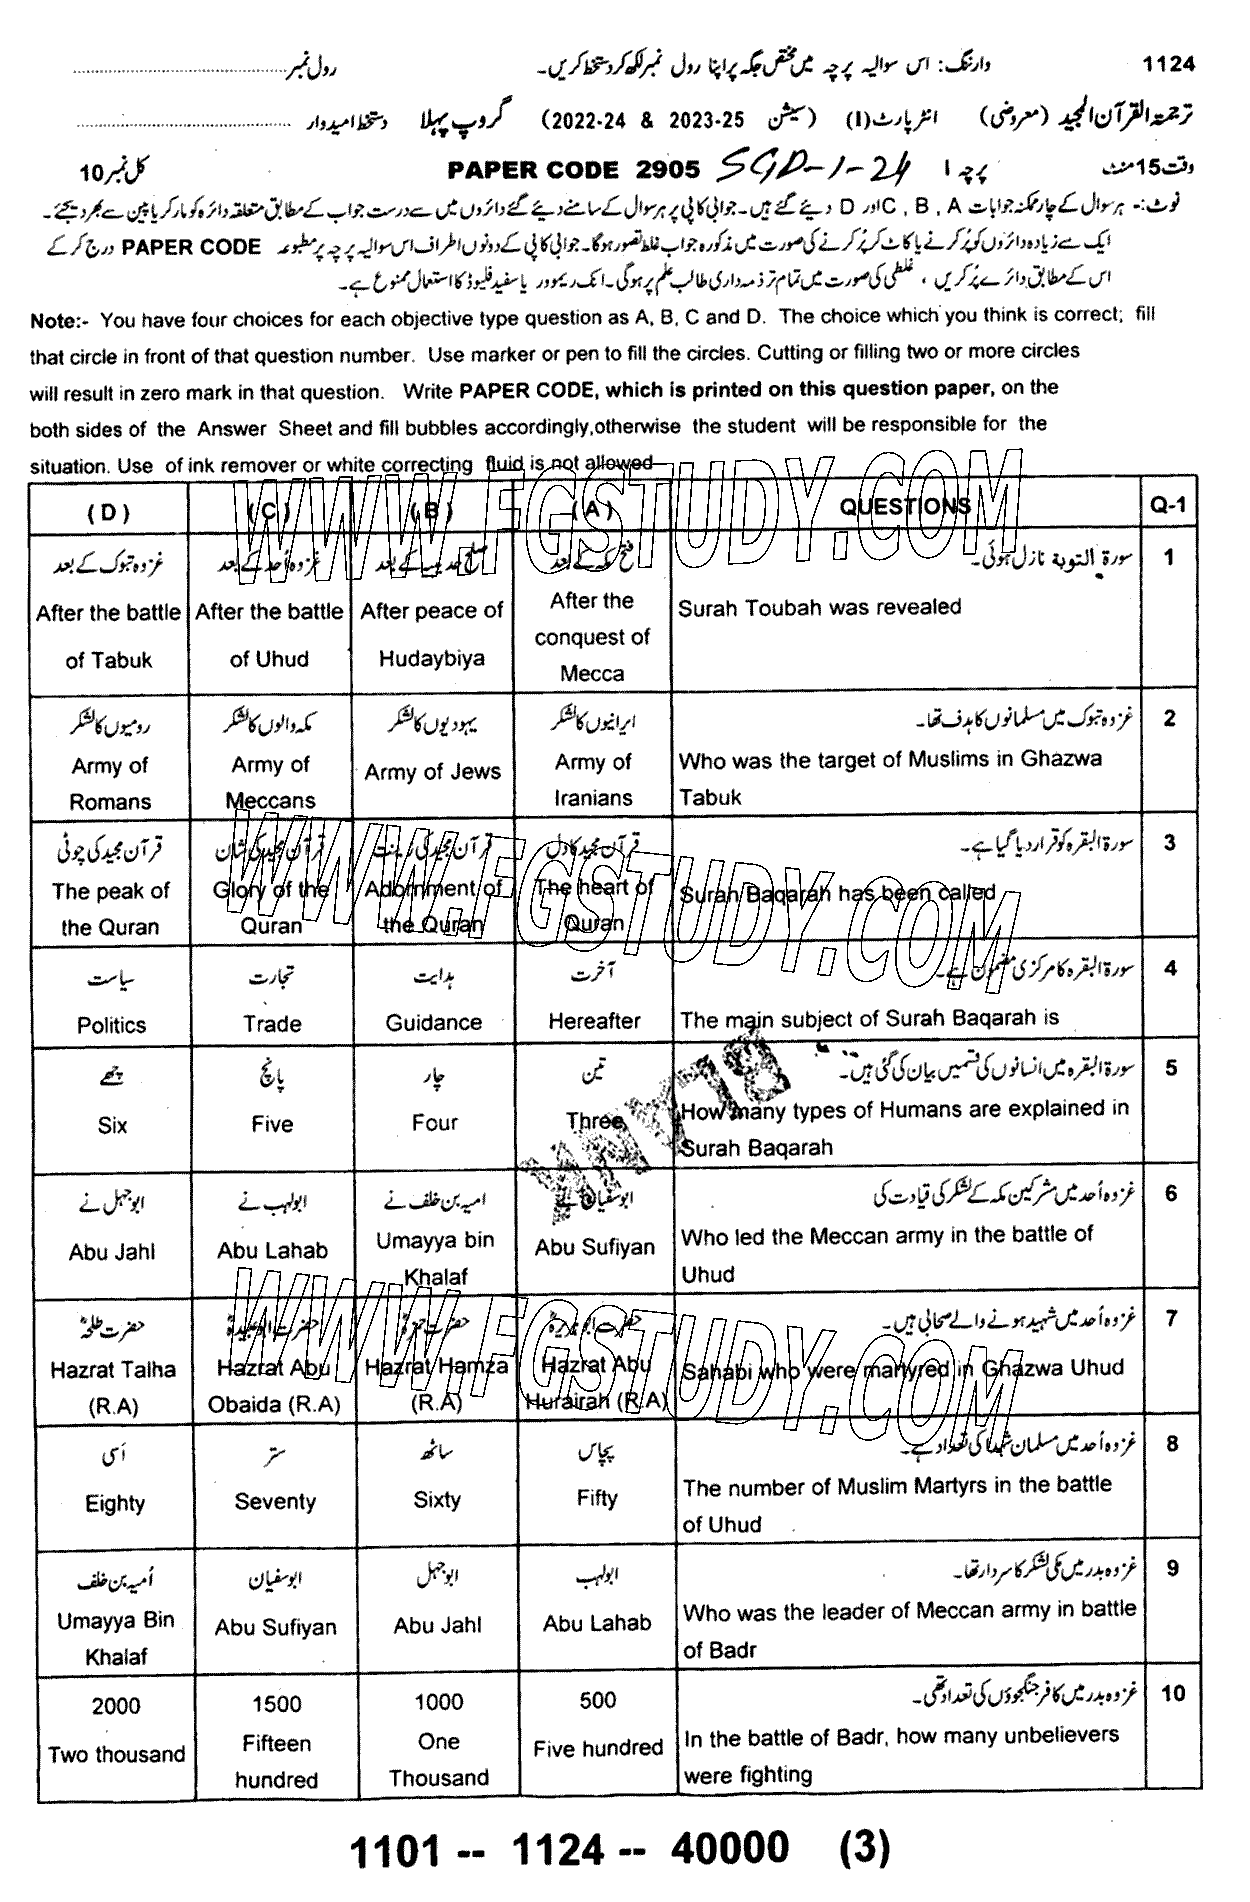 1124 وارننگ: اس سوالیہ پرچہ میں مختص جگہ پر اپنا رول نمبر لکھ کر دستخط کریں۔ رول نمبر
ترجمۃ القرآن المجید (معروضی) انٹر پارٹ (I) (سیشن 2023-25 & 2022-24) گروپ پہلا دستخط امیدوار
وقت 15 منٹ پرچہ I SGD-1-24 PAPER CODE 2905 کل نمبر 10
نوٹ:- ہر سوال کے چار ممکنہ جوابات A ، B ، C اور D دیئے گئے ہیں۔ جوابی کاپی پر ہر سوال کے سامنے دیئے گئے دائروں میں سے درست جواب کے مطابق متعلقہ دائرہ کو مارکر یا پین سے بھر دیجئے۔
ایک سے زیادہ دائروں کو پُر کرنے یا کاٹ کر پُر کرنے کی صورت میں مذکورہ جواب غلط تصور ہوگا۔ جوابی کاپی کے دونوں اطراف اس سوالیہ پرچہ پر مطبوعہ PAPER CODE درج کر کے
اس کے مطابق دائرے پُر کریں ، غلطی کی صورت میں تمام تر ذمہ داری طالب علم پر ہوگی۔ انک ریموور یا سفید فلیوڈ کا استعمال ممنوع ہے۔
Note:- You have four choices for each objective type question as A, B, C and D. The choice which you think is correct; fill
that circle in front of that question number. Use marker or pen to fill the circles. Cutting or filling two or more circles
will result in zero mark in that question. Write PAPER CODE, which is printed on this question paper, on the
both sides of the Answer Sheet and fill bubbles accordingly,otherwise the student will be responsible for the
situation. Use of ink remover or white correcting fluid is not allowed
WWW.FGSTUDY.COM
(D) (C) (B) (A) QUESTIONS Q-1
غزوہ تبوک کے بعد غزوہ اُحد کے بعد صلح حدیبیہ کے بعد فتح مکہ کے بعد سورۃ التوبۃ نازل ہوئی۔ 1
After the battle After the battle After peace of After the Surah Toubah was revealed
of Tabuk of Uhud Hudaybiya conquest of
Mecca
رومیوں کا لشکر مکہ والوں کا لشکر یہودیوں کا لشکر ایرانیوں کا لشکر غزوہ تبوک میں مسلمانوں کا ہدف تھا۔ 2
Army of Army of Army of Jews Army of Who was the target of Muslims in Ghazwa
Romans Meccans Iranians Tabuk
WWW.FGSTUDY.COM
قرآن مجید کی چوٹی قرآن مجید کی شان قرآن مجید کی زینت قرآن مجید کا دل سورۃ البقرہ کو قرار دیا گیا ہے۔ 3
The peak of Glory of the Adornment of The heart of Surah Baqarah has been called
the Quran Quran the Quran Quran
سیاست تجارت ہدایت آخرت سورۃ البقرہ کا مرکزی مضمون ہے۔ 4
Politics Trade Guidance Hereafter The main subject of Surah Baqarah is
چھے پانچ چار تین سورۃ البقرہ میں انسانوں کی قسمیں بیان کی گئی ہیں۔ 5
Six Five Four Three How many types of Humans are explained in
Surah Baqarah
ابوجہل نے ابولہب نے امیہ بن خلف نے ابوسفیان نے غزوہ اُحد میں مشرکین مکہ کے لشکر کی قیادت کی 6
Abu Jahl Abu Lahab Umayya bin Abu Sufiyan Who led the Meccan army in the battle of
Khalaf Uhud
WWW.FGSTUDY.COM
حضرت طلحہؓ حضرت ابوعبیدہؓ حضرت حمزہؓ حضرت ابوہریرہؓ غزوہ اُحد میں شہید ہونے والے صحابی ہیں۔ 7
Hazrat Talha Hazrat Abu Hazrat Hamza Hazrat Abu Sahabi who were martyred in Ghazwa Uhud
(R.A) Obaida (R.A) (R.A) Hurairah (R.A)
اَسی ستر ساٹھ پچاس غزوہ اُحد میں مسلمان شہدا کی تعداد ہے۔ 8
Eighty Seventy Sixty Fifty The number of Muslim Martyrs in the battle
of Uhud
اُمیہ بن خلف ابوسفیان ابوجہل ابولہب غزوہ بدر میں مکی لشکر کا سردار تھا۔ 9
Umayya Bin Abu Sufiyan Abu Jahl Abu Lahab Who was the leader of Meccan army in battle
Khalaf of Badr
2000 1500 1000 500 غزوہ بدر میں کافر جنگجوؤں کی تعداد تھی۔ 10
Two thousand Fifteen One Five hundred In the battle of Badr, how many unbelievers
hundred Thousand were fighting
1101 -- 1124 -- 40000 (3)